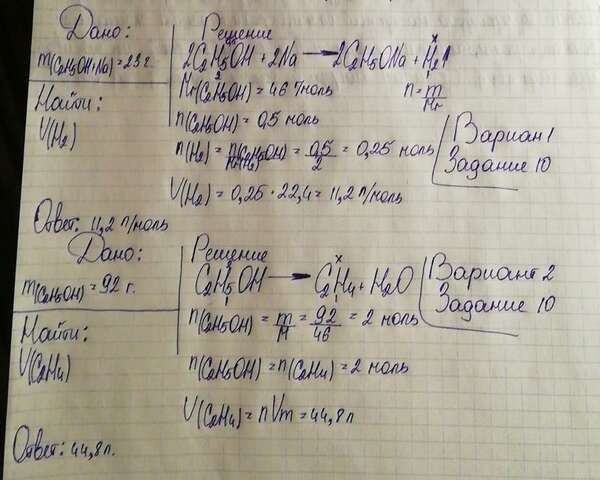 Дано:
m(C₂H₅OH+Na)=23 г.
Найти:
V(H₂)
Решение
2C₂H₅OH + 2Na → 2C₂H₅ONa + H₂↑
Mr(C₂H₅OH) = 46 г/моль
n = m/Mr
n(C₂H₅OH) = 0,5 моль
n(H₂) = n(C₂H₅OH) = 0,5/2 = 0,25 моль
V(H₂) = 0,25 · 22,4 = 11,2 л/моль
Вариан 1
Задание 10
Ответ: 11,2 л/моль
Дано:
m(C₂H₅OH) = 92 г.
Найти:
V(C₂H₄)
Решение
C₂H₅OH → C₂H₄ + H₂O
n(C₂H₅OH) = m/M = 92/46 = 2 моль
n(C₂H₅OH) = n(C₂H₄) = 2 моль
V(C₂H₄) = nVm = 44,8 л
Вариант 2
Задание 10
Ответ: 44,8 л.